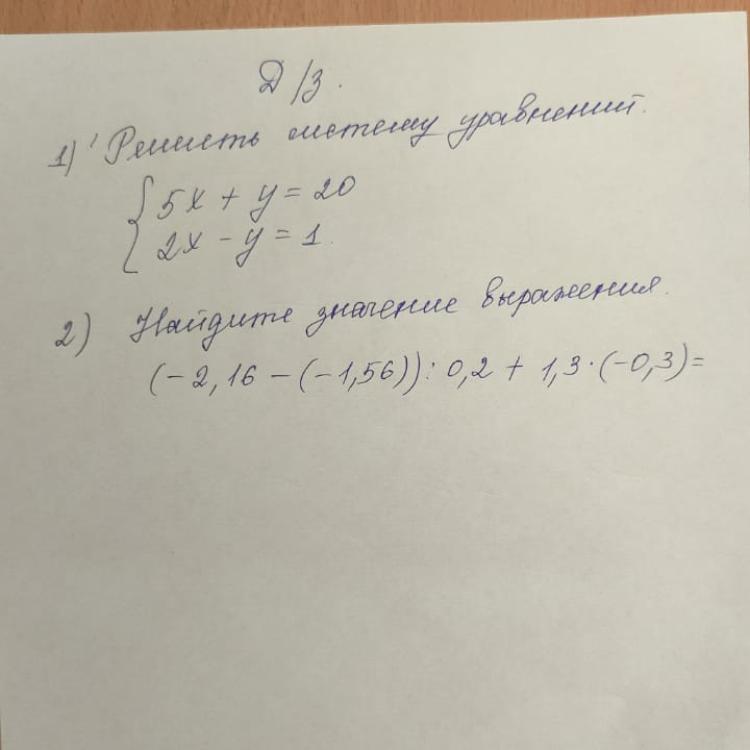 Д/З.
1) Решить систему уравнений.
{ 5x + y = 20
2x - y = 1.
2) Найдите значение выражения.
(-2,16 - (-1,56)) : 0,2 + 1,3 · (-0,3) =